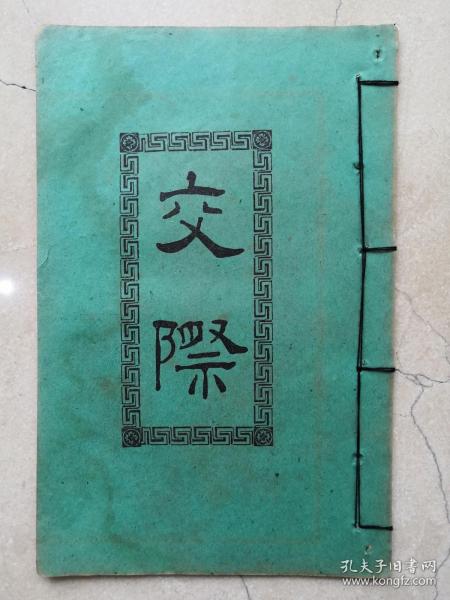 交
際
孔夫子旧书网
www.kongfz.com